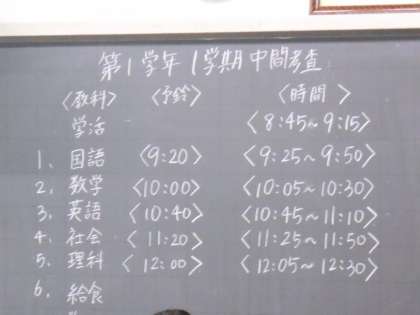 第1学年 1学期中間考査
〈教科〉 〈予鈴〉 〈時間〉
学活 〈8:45~9:15〉
1、国語 〈9:20〉 〈9:25~9:50〉
2、数学 〈10:00〉 〈10:05~10:30〉
3、英語 〈10:40〉 〈10:45~11:10〉
4、社会 〈11:20〉 〈11:25~11:50〉
5、理科 〈12:00〉 〈12:05~12:30〉
6、給食